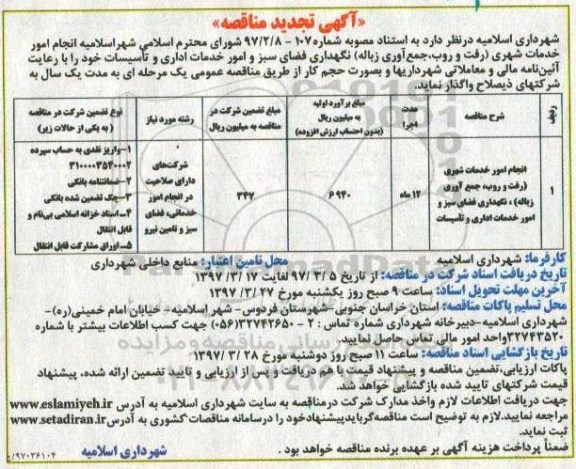 «آگهی تجدید مناقصه»
شهرداری اسلامیه درنظر دارد به استناد مصوبه شماره ۱۰۷ - ۹۷/۲/۸ شورای محترم اسلامی شهراسلامیه انجام امور
خدمات شهری (رفت و روب،جمع‌آوری زباله) نگهداری فضای سبز و امور خدمات اداری و تأسیسات خود را با رعایت
آئین‌نامه مالی و معاملاتی شهرداریها و بصورت حجم کار از طریق مناقصه عمومی یک مرحله ای به مدت یک سال به
شرکتهای ذیصلاح واگذار نماید.
ردیف
شرح مناقصه
مدت اجرا
مبلغ برآورد اولیه به میلیون ریال (بدون احتساب ارزش افزوده)
مبلغ تضمین شرکت در مناقصه به میلیون ریال
رشته مورد نیاز
نوع تضمین شرکت در مناقصه (به یکی از حالات زیر)
۱
انجام امور خدمات شهری
(رفت و روب، جمع آوری
زباله) ، نگهداری فضای سبز و
امور خدمات اداری و تأسیسات
۱۲ ماه
۶۹۴۰
۳۴۷
شرکت‌های
دارای صلاحیت
در انجام امور
خدماتی، فضای
سبز و تامین نیرو
۱-واریز نقدی به حساب سپرده
۳۱۰۰۰۰۳۵۴۰۰۰۲
۲-ضمانتنامه بانکی
۳-چک تضمین شده بانکی
۴-اسناد خزانه اسلامی بی‌نام و
قابل انتقال
۵-اوراق مشارکت قابل انتقال
کارفرما: شهرداری اسلامیه محل تامین اعتبار: منابع داخلی شهرداری
تاریخ دریافت اسناد شرکت در مناقصه: از تاریخ ۵ /۳ /۹۷ لغایت ۱۷ /۳ /۱۳۹۷
آخرین مهلت تحویل اسناد: ساعت ۹ صبح روز یکشنبه مورخ ۲۷ /۳ /۱۳۹۷
محل تسلیم پاکات مناقصه: استان خراسان جنوبی-شهرستان فردوس - شهر اسلامیه- خیابان امام خمینی(ره)-
شهرداری اسلامیه-دبیرخانه شهرداری شماره تماس : ۲ - ۳۲۷۴۲۶۵۰(۰۵۶) جهت کسب اطلاعات بیشتر با شماره
۳۲۷۴۳۵۲۰واحد امور مالی تماس حاصل نمایید.
تاریخ بازگشایی اسناد مناقصه: ساعت ۱۱ صبح روز دوشنبه مورخ ۲۸ /۳ /۱۳۹۷
پاکات ارزیابی،تضمین مناقصه و پیشنهاد قیمت با هم دریافت و پس از ارزیابی و تایید تضمین ارائه شده، پیشنهاد
قیمت شرکتهای تایید شده بازگشایی خواهد شد.
جهت دریافت اطلاعات لازم واخذ مدارک شرکت درمناقصه به سایت شهرداری اسلامیه به آدرس www.eslamiyeh.ir
مراجعه نمایید.لازم به توضیح است مناقصه‌گربایدپیشنهادخود را درسامانه مناقصات کشوری به آدرسwww.setadiran.ir
ثبت نماید.
ضمناً پرداخت هزینه آگهی بر عهده برنده مناقصه خواهد بود.
شهرداری اسلامیه
۹۷۰۳۶۱۰۴/